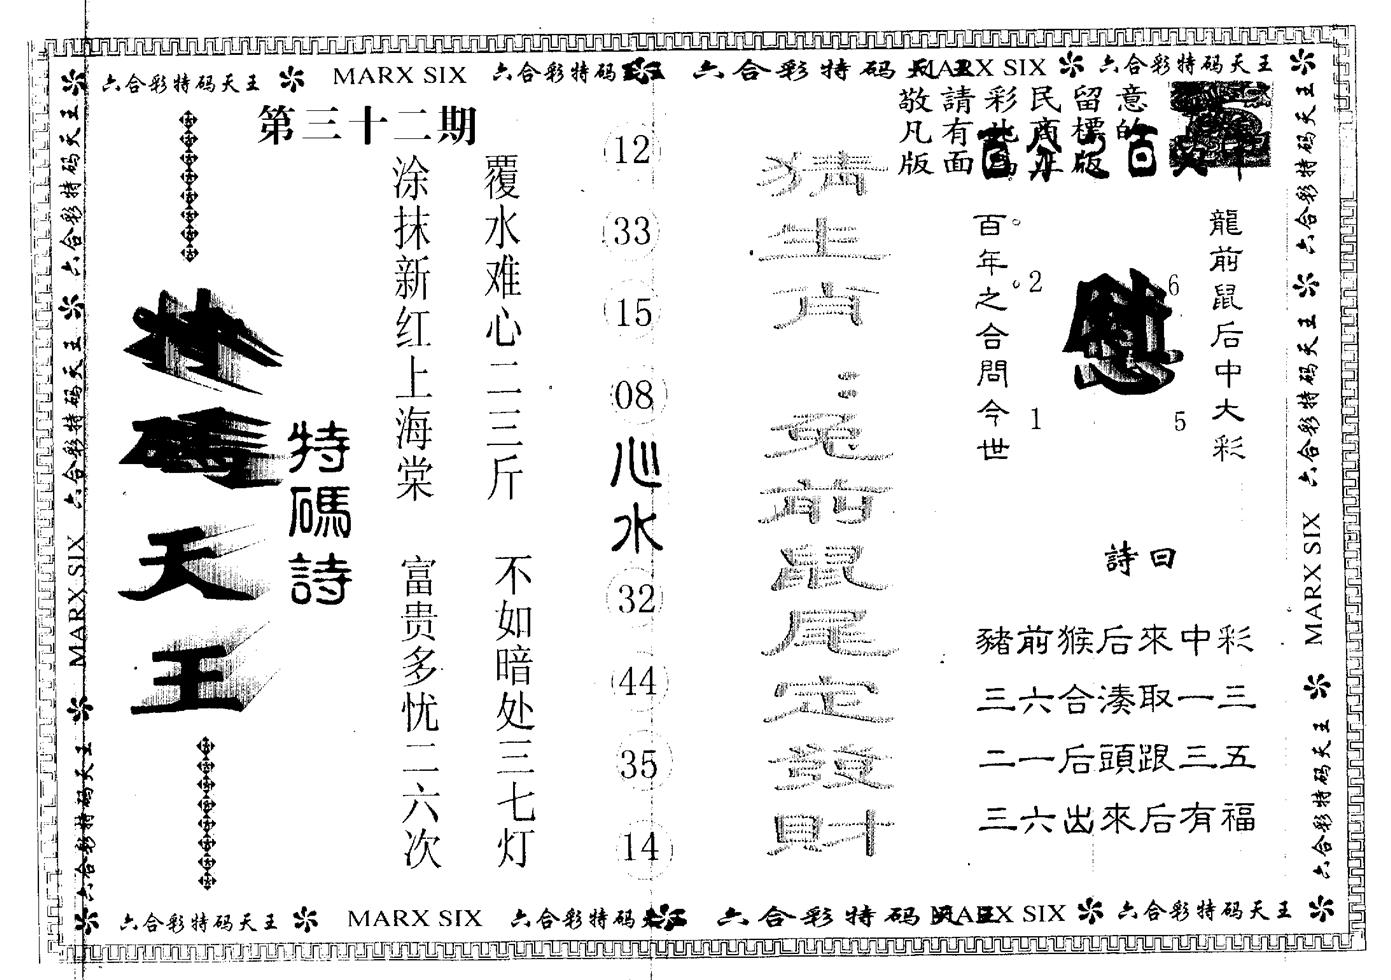 六合彩特码天王 MARX SIX 六合彩特码 六合彩特码 MARX SIX 六合彩特码天王
第三十二期
特碼天王
特碼詩
覆水难心二三斤 不如暗处三七灯
涂抹新红上海棠 富贵多忧二六次
12
33
15
08
心水
32
44
35
14
猜生肖：兔前鼠尾定發財
敬請彩民留意
凡有
版面
龍前鼠后中大彩
慰
6
5
2
1
百年之合問今世
詩曰
豬前猴后來中彩
三六合湊取一三
二一后頭跟三五
三六出來后有福
六合彩特码天王 六合彩特码天王 MARX SIX 六合彩特码天王
六合彩特码天王 六合彩特码天王 MARX SIX 六合彩特码天王
六合彩特码天王 MARX SIX 六合彩特码 六合彩特码 MARX SIX 六合彩特码天王